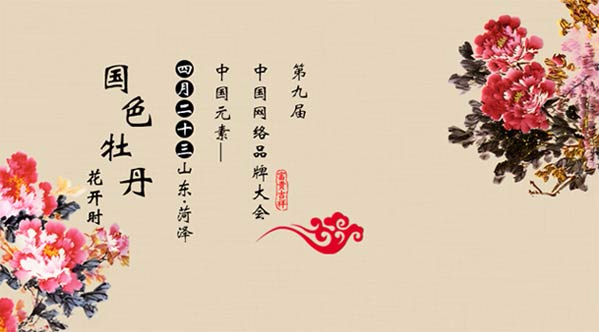 第九届
中国网络品牌大会
富贵吉祥
中国元素—
四月二十三山东·菏泽
国色牡丹
花开时